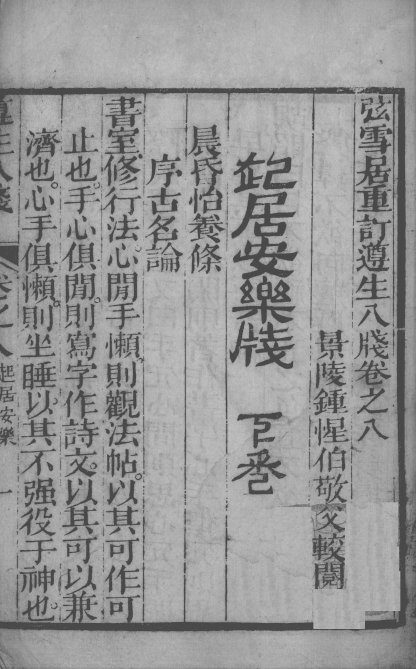 弦雪居重訂遵生八牋卷之八
景陵鍾惺伯敬父較閱
起居安樂牋 下卷
晨昏怡養條
序古名論
書室修行法心閒手懶則觀法帖以其可作可
止也手心俱閒則寫字作詩文以其可以兼
濟也心手俱懶則坐睡以其不强役于神也
遵生八牋 卷之八 起居安樂 一